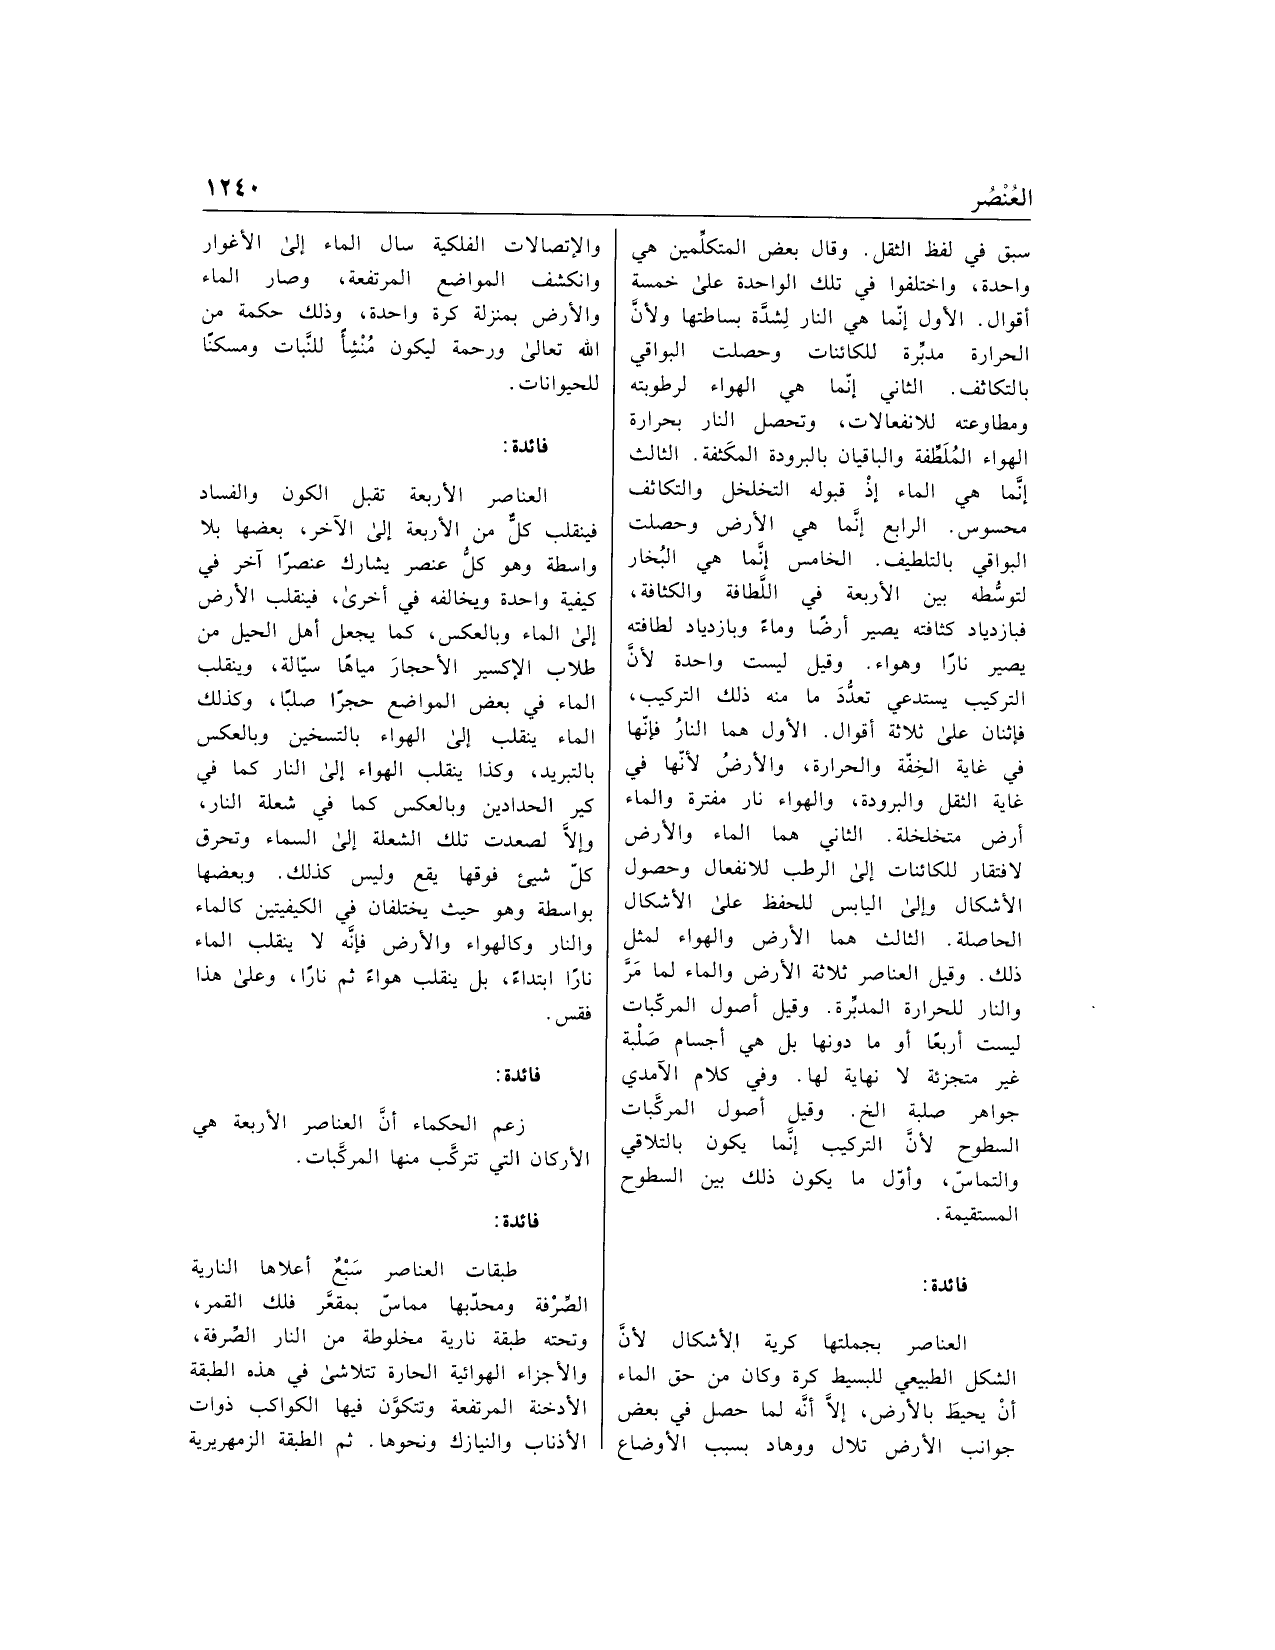 العُنْصُر
١٢٤٠
سبق في لفظ الثقل. وقال بعض المتكلِّمين هي
واحدة، واختلفوا في تلك الواحدة علىٰ خمسة
أقوال. الأول إنّما هي النار لِشدَّة بساطتها ولأنَّ
الحرارة مدبِّرة للكائنات وحصلت البواقي
بالتكاثف. الثاني إنّما هي الهواء لرطوبته
ومطاوعته للانفعالات، وتحصل النار بحرارة
الهواء المُلَطِّفة والباقيان بالبرودة المكَثفة. الثالث
إنَّما هي الماء إذْ قبوله التخلخل والتكاثف
محسوس. الرابع إنَّما هي الأرض وحصلت
البواقي بالتلطيف. الخامس إنَّما هي البُخار
لتوسُّطه بين الأربعة في اللَّطافة والكثافة،
فبازدياد كثافته يصير أرضًا وماءً وبازدياد لطافته
يصير نارًا وهواء. وقيل ليست واحدة لأنَّ
التركيب يستدعي تعدُّدَ ما منه ذلك التركيب،
فإثنان علىٰ ثلاثة أقوال. الأول هما النارُ فإنّها
في غاية الخِفّة والحرارة، والأرضُ لأنّها في
غاية الثقل والبرودة، والهواء نار مفترة والماء
أرض متخلخلة. الثاني هما الماء والأرض
لافتقار للكائنات إلىٰ الرطب للانفعال وحصول
الأشكال وإلىٰ اليابس للحفظ علىٰ الأشكال
الحاصلة. الثالث هما الأرض والهواء لمثل
ذلك. وقيل العناصر ثلاثة الأرض والماء لما مَرَّ
والنار للحرارة المدبِّرة. وقيل أصول المركّبات
ليست أربعًا أو ما دونها بل هي أجسام صَلْبة
غير متجزئة لا نهاية لها. وفي كلام الآمدي
جواهر صلبة الخ. وقيل أصول المركَّبات
السطوح لأنَّ التركيب إنَّما يكون بالتلاقي
والتماسّ، وأوّل ما يكون ذلك بين السطوح
المستقيمة.
فائدة:
العناصر بجملتها كرية الأشكال لأنَّ
الشكل الطبيعي للبسيط كرة وكان من حق الماء
أنْ يحيطَ بالأرض، إلاَّ أنَّه لما حصل في بعض
جوانب الأرض تلال ووهاد بسبب الأوضاع
والإتصالات الفلكية سال الماء إلىٰ الأغوار
وانكشف المواضع المرتفعة، وصار الماء
والأرض بمنزلة كرة واحدة، وذلك حكمة من
الله تعالىٰ ورحمة ليكون مُنْشِأً للنَّبات ومسكنًا
للحيوانات.
فائدة:
العناصر الأربعة تقبل الكون والفساد
فينقلب كلٌّ من الأربعة إلىٰ الآخر، بعضها بلا
واسطة وهو كلُّ عنصر يشارك عنصرًا آخر في
كيفية واحدة ويخالفه في أخرىٰ، فينقلب الأرض
إلىٰ الماء وبالعكس، كما يجعل أهل الحيل من
طلاب الإكسير الأحجارَ مياهًا سيّالة، وينقلب
الماء في بعض المواضع حجرًا صلبًا، وكذلك
الماء ينقلب إلىٰ الهواء بالتسخين وبالعكس
بالتبريد، وكذا ينقلب الهواء إلىٰ النار كما في
كير الحدادين وبالعكس كما في شعلة النار،
وإلاَّ لصعدت تلك الشعلة إلىٰ السماء وتحرق
كلّ شيئ فوقها يقع وليس كذلك. وبعضها
بواسطة وهو حيث يختلفان في الكيفيتين كالماء
والنار وكالهواء والأرض فإنَّه لا ينقلب الماء
نارًا ابتداءً، بل ينقلب هواءً ثم نارًا، وعلىٰ هذا
فقس.
فائدة:
زعم الحكماء أنَّ العناصر الأربعة هي
الأركان التي تتركَّب منها المركَّبات.
فائدة:
طبقات العناصر سَبْعٌ أعلاها النارية
الصِّرْفة ومحدّبها مماسّ بمقعَّر فلك القمر،
وتحته طبقة نارية مخلوطة من النار الصِّرفة،
والأجزاء الهوائية الحارة تتلاشىٰ في هذه الطبقة
الأدخنة المرتفعة وتتكوَّن فيها الكواكب ذوات
الأذناب والنيازك ونحوها. ثم الطبقة الزمهريرية